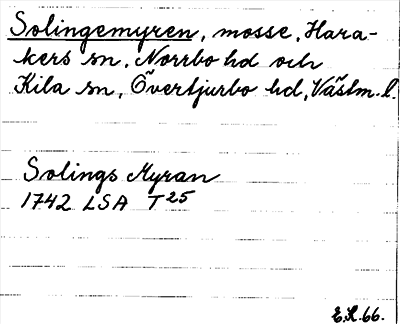 Solingemyren, mosse, Hara-
kers sn, Norrbo hd och
Kila sn, Övertjurbo hd, Västm. l.
Solings Myran
1742 LSA T25
E.H. 66.